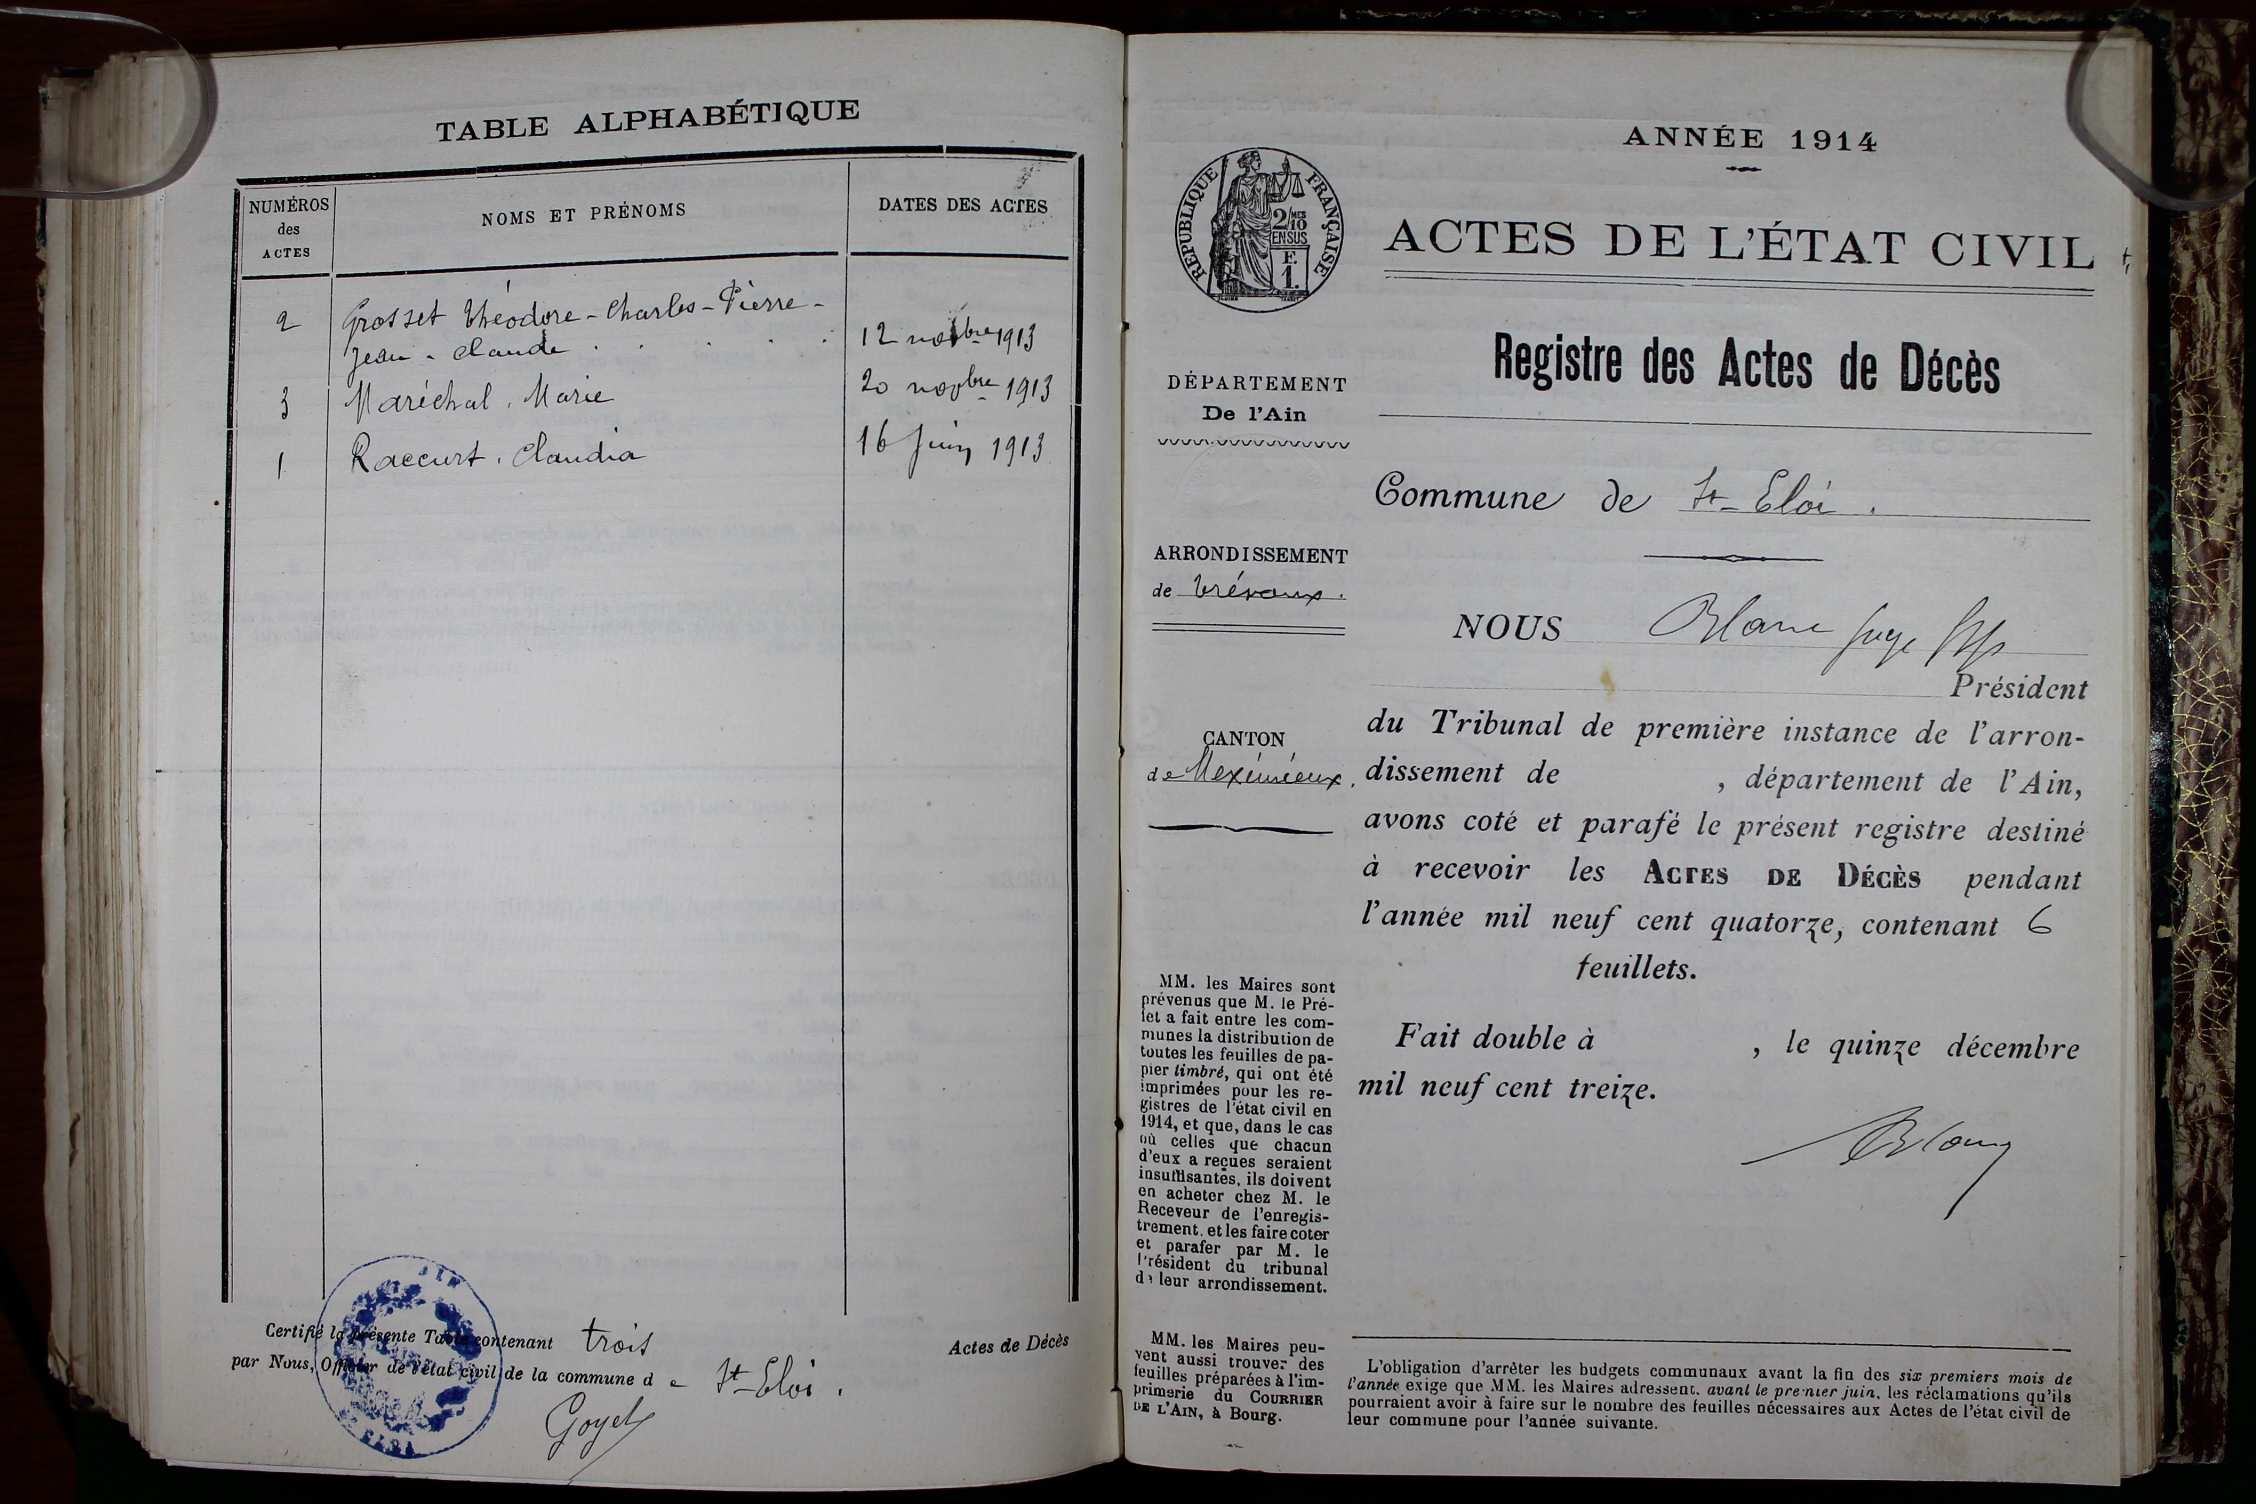 TABLE ALPHABÉTIQUE
NUMÉROS
des
ACTES
NOMS ET PRÉNOMS
DATES DES ACTES
2 Grosset Théodore-Charles-Pierre-
Jean-Claude . . . . . 12 novbre 1913
3 Maréchal, Marie 20 novbre 1913
1 Raccurt, Claudia 16 Juin 1913
Certifié la présente Table contenant trois Actes de Décès
par Nous, Officier de l'état civil de la commune de St-Eloi.
Goyet
ANNÉE 1914
RÉPUBLIQUE FRANÇAISE
2/10 MES
EN SUS
F.
1.
ACTES DE L'ÉTAT CIVIL
Registre des Actes de Décès
DÉPARTEMENT
De l'Ain
Commune de St-Eloi.
ARRONDISSEMENT
de Trévoux.
NOUS Blanc juge
Président
du Tribunal de première instance de l'arron-
dissement de , département de l'Ain,
avons coté et parafé le présent registre destiné
à recevoir les ACTES DE DÉCÈS pendant
l'année mil neuf cent quatorze, contenant 6
feuillets.
Fait double à , le quinze décembre
mil neuf cent treize.
Blanc
CANTON
de Meximieux.
MM. les Maires sont
prévenus que M. le Pré-
fet a fait entre les com-
munes la distribution de
toutes les feuilles de pa-
pier timbré, qui ont été
imprimées pour les re-
gistres de l'état civil en
1914, et que, dans le cas
où celles que chacun
d'eux a reçues seraient
insuffisantes, ils doivent
en acheter chez M. le
Receveur de l'enregis-
trement, et les faire coter
et parafer par M. le
Président du tribunal
de leur arrondissement.
MM. les Maires peu-
vent aussi trouver des
feuilles préparées à l'im-
primerie du COURRIER
DE L'AIN, à Bourg.
L'obligation d'arrêter les budgets communaux avant la fin des six premiers mois de
l'année exige que MM. les Maires adressent, avant le premier juin, les réclamations qu'ils
pourraient avoir à faire sur le nombre des feuilles nécessaires aux Actes de l'état civil de
leur commune pour l'année suivante.